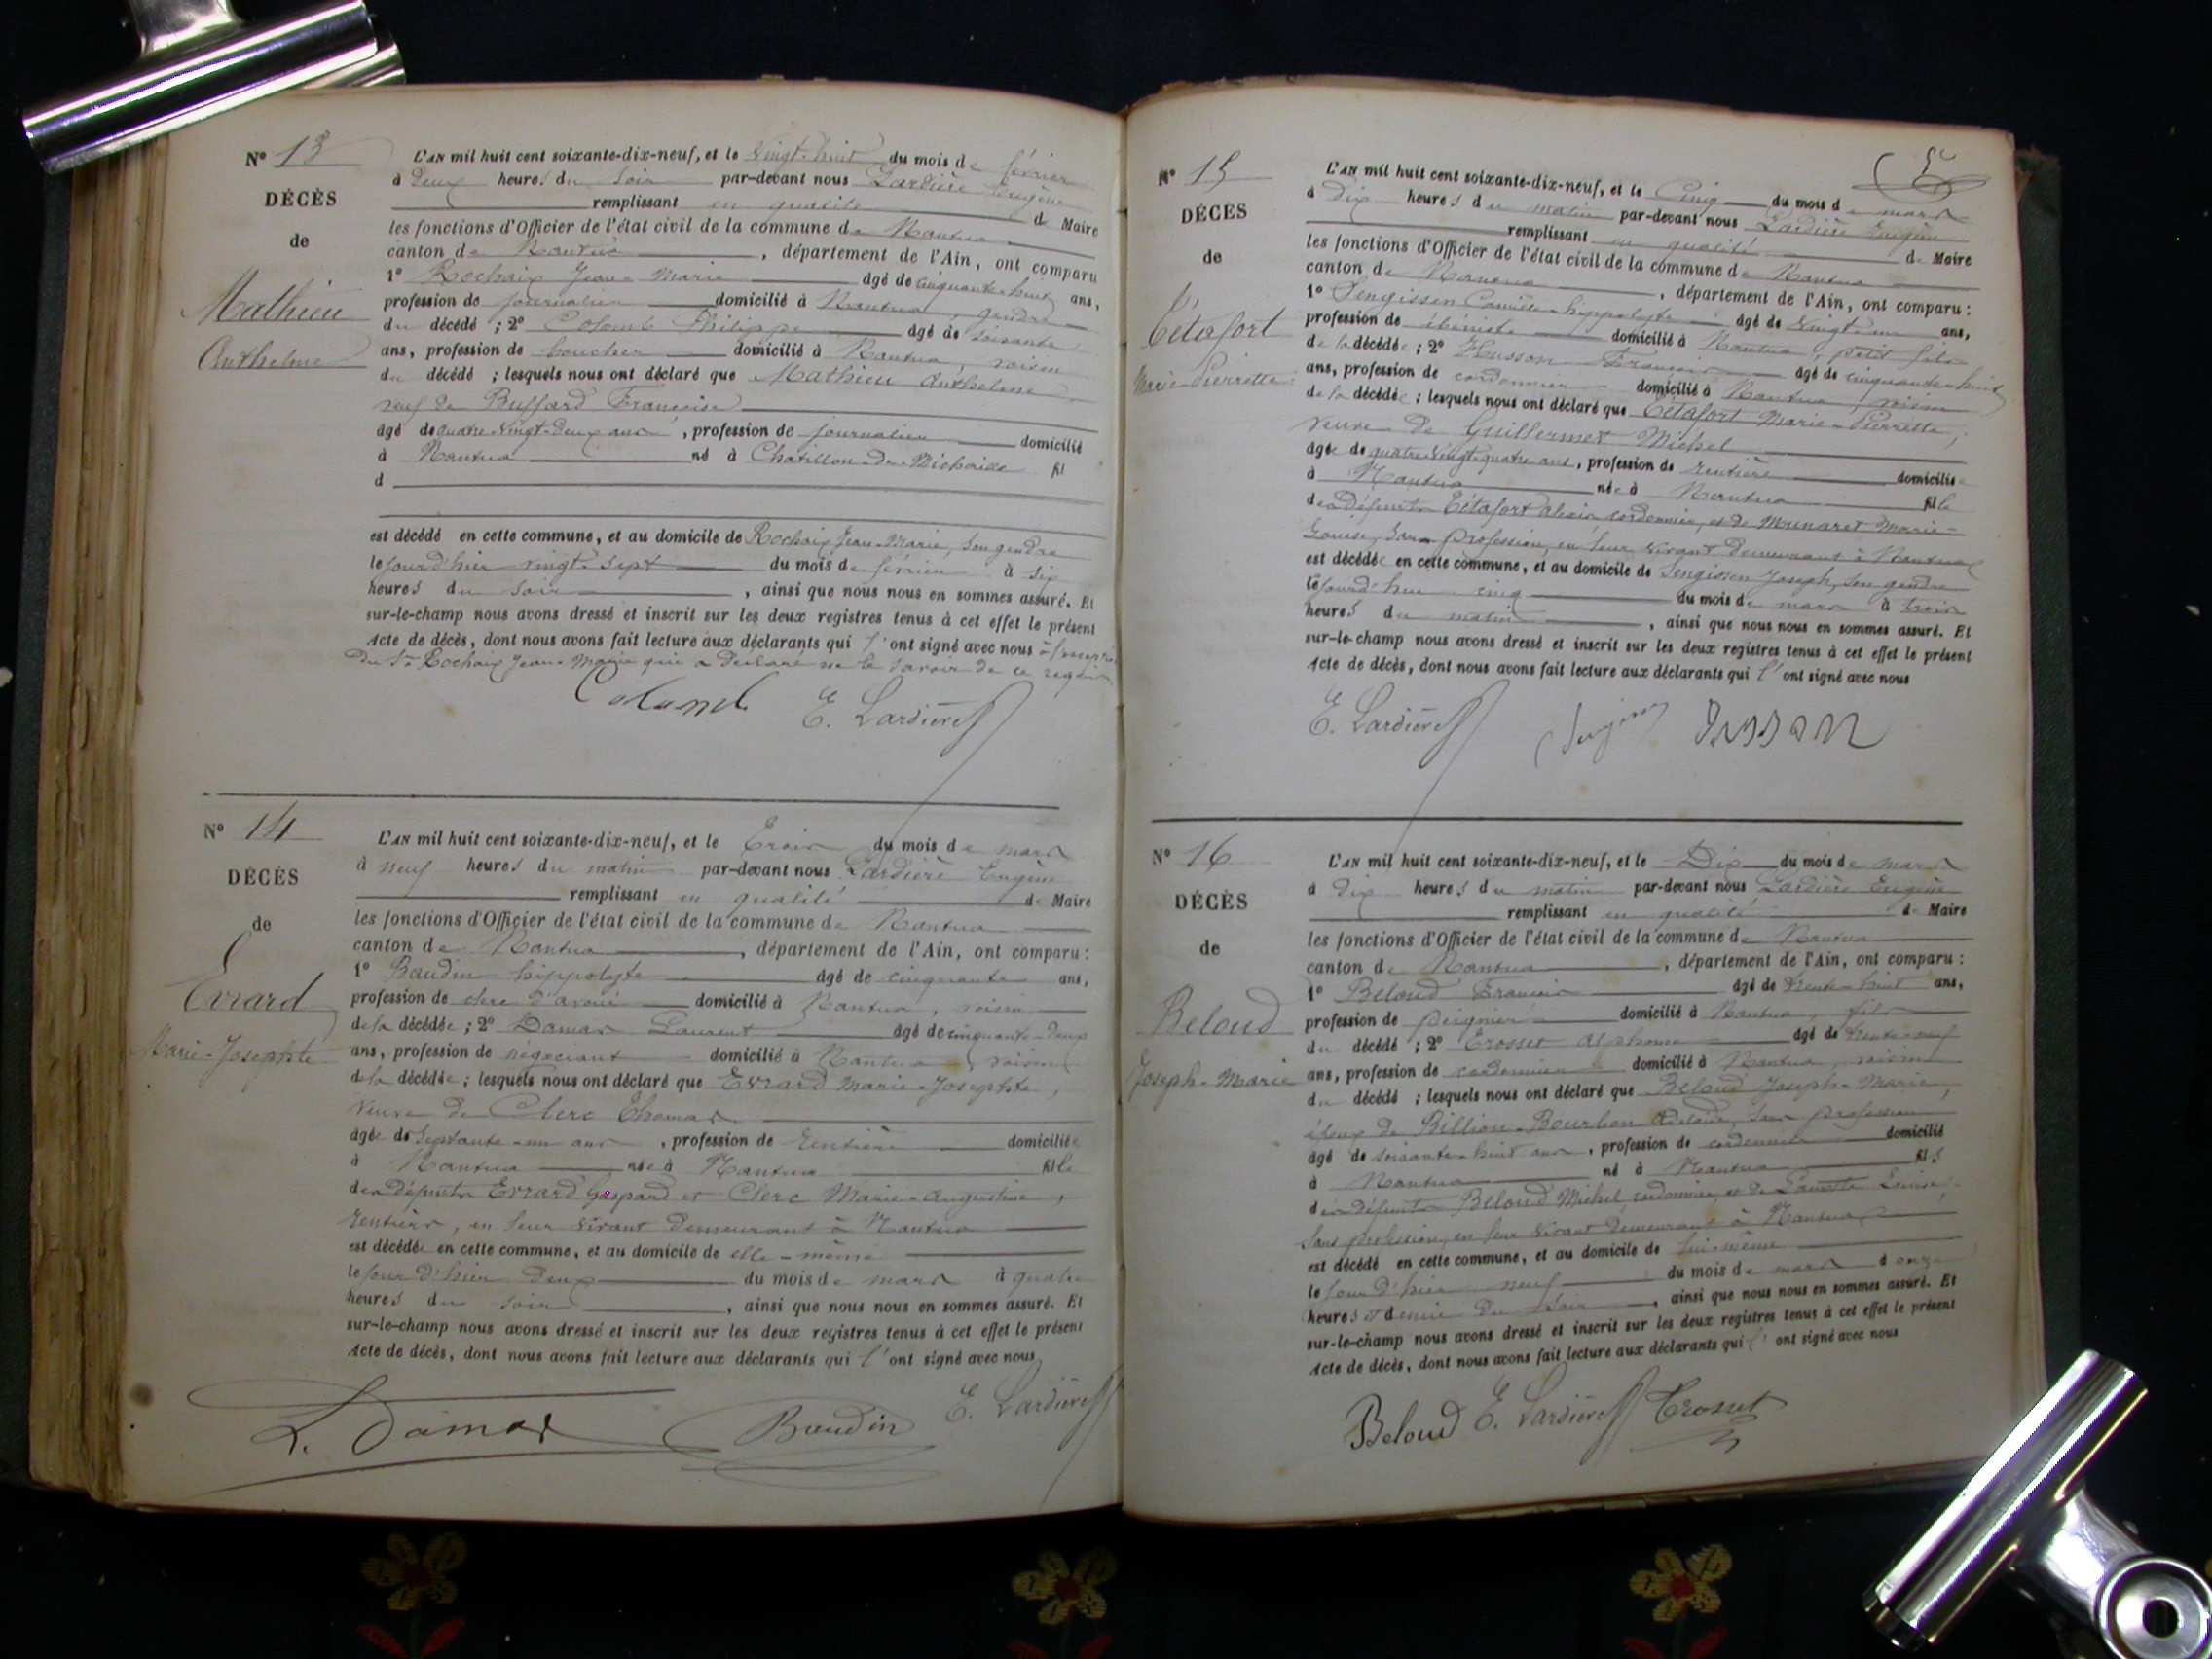 N° 13
DÉCÈS
de
Mathieu
Anthelme
L'AN mil huit cent soixante-dix-neuf, et le vingt-huit du mois de février
à deux heures du soir par-devant nous Lardière Eugène
remplissant en qualité de Maire
les fonctions d'Officier de l'état civil de la commune de Nantua
canton de Nantua, département de l'Ain, ont comparu
1° Rochaix Jean-Marie âgé de cinquante-huit ans,
profession de journalier domicilié à Nantua, gendre
du décédé ; 2° Colomb Philippe âgé de soixante
ans, profession de boucher domicilié à Nantua, voisin
du décédé ; lesquels nous ont déclaré que Mathieu Anthelme
veuf de Buffard Françoise
âgé de quatre-vingt-deux ans, profession de journalier domicilié
à Nantua né à Châtillon-de-Michaille fil
d
est décédé en cette commune, et au domicile de Rochaix Jean-Marie, son gendre
le jour d'hier vingt-sept du mois de février à six
heures du soir, ainsi que nous nous en sommes assuré. Et
sur-le-champ nous avons dressé et inscrit sur les deux registres tenus à cet effet le présent
Acte de décès, dont nous avons fait lecture aux déclarants qui l'ont signé avec nous
du Sr Rochaix Jean-Marie qui a déclaré ne le savoir de ce requis
Colomb E. Lardière
N° 14
DÉCÈS
de
Evrard
Marie-Josephte
L'AN mil huit cent soixante-dix-neuf, et le trois du mois de mars
à neuf heures du matin par-devant nous Lardière Eugène
remplissant en qualité de Maire
les fonctions d'Officier de l'état civil de la commune de Nantua
canton de Nantua, département de l'Ain, ont comparu :
1° Baudin hippolyte âgé de cinquante ans,
profession de clerc d'avoué domicilié à Nantua, voisin
de la décédée ; 2° Damas Laurent âgé de cinquante-deux
ans, profession de négociant domicilié à Nantua, voisin
de la décédée ; lesquels nous ont déclaré que Evrard Marie-Josephte,
veuve de Clerc Thomas
âgée de septante-un ans, profession de rentière domiciliée
à Nantua née à Nantua fille
des défunts Evrard Gaspard et Clerc Marie-Augustine,
rentiers, en leur vivant demeurant à Nantua
est décédée en cette commune, et au domicile de elle-même
le jour d'hier deux du mois de mars à quatre
heures du soir, ainsi que nous nous en sommes assuré. Et
sur-le-champ nous avons dressé et inscrit sur les deux registres tenus à cet effet le présent
Acte de décès, dont nous avons fait lecture aux déclarants qui l'ont signé avec nous
L. Damas Baudin E. Lardière
N° 15
DÉCÈS
de
Tétafort
Marie-Pierrette
L'AN mil huit cent soixante-dix-neuf, et le cinq du mois de mars
à dix heures du matin par-devant nous Lardière Eugène
remplissant en qualité de Maire
les fonctions d'Officier de l'état civil de la commune de Nantua
canton de Nantua, département de l'Ain, ont comparu :
1° Sengissen Camille-hippolyte âgé de vingt-un ans,
profession de ébéniste domicilié à Nantua, petit fils
de la décédée ; 2° Husson François âgé de cinquante-huit
ans, profession de cordonnier domicilié à Nantua, voisin
de la décédée ; lesquels nous ont déclaré que Tétafort Marie-Pierrette,
veuve de Guillermet Michel
âgée de quatre-vingt-quatre ans, profession de rentière domiciliée
à Nantua née à Nantua fille
des défunts Tétafort Alexis cordonnier, et de Munaret Marie-
Louise, sans profession, en leur vivant demeurant à Nantua
est décédée en cette commune, et au domicile de Sengissen Joseph, son gendre
le jourd'hui cinq du mois de mars à trois
heures du matin, ainsi que nous nous en sommes assuré. Et
sur-le-champ nous avons dressé et inscrit sur les deux registres tenus à cet effet le présent
Acte de décès, dont nous avons fait lecture aux déclarants qui l'ont signé avec nous
E. Lardière Sengissen Husson
N° 16
DÉCÈS
de
Beloud
Joseph-Marie
L'AN mil huit cent soixante-dix-neuf, et le Dix du mois de mars
à dix heures du matin par-devant nous Lardière Eugène
remplissant en qualité de Maire
les fonctions d'Officier de l'état civil de la commune de Nantua
canton de Nantua, département de l'Ain, ont comparu :
1° Beloud François âgé de trente-huit ans,
profession de peignier domicilié à Nantua, fils
du décédé ; 2° Crosset Alphonse âgé de trente-neuf
ans, profession de cordonnier domicilié à Nantua, voisin
du décédé ; lesquels nous ont déclaré que Beloud Joseph-Marie,
époux de Billion-Bourbon Adélaïde, sans profession
âgé de soixante-huit ans, profession de cordonnier domicilié
à Nantua né à Nantua fils
des défunts Beloud Michel, cordonnier, et de Louise,
sans profession, en leur vivant demeurant à Nantua
est décédé en cette commune, et au domicile de lui-même
le jour d'hier neuf du mois de mars à onze
heures et demie du soir, ainsi que nous nous en sommes assuré. Et
sur-le-champ nous avons dressé et inscrit sur les deux registres tenus à cet effet le présent
Acte de décès, dont nous avons fait lecture aux déclarants qui l'ont signé avec nous
Beloud E. Lardière Crosset